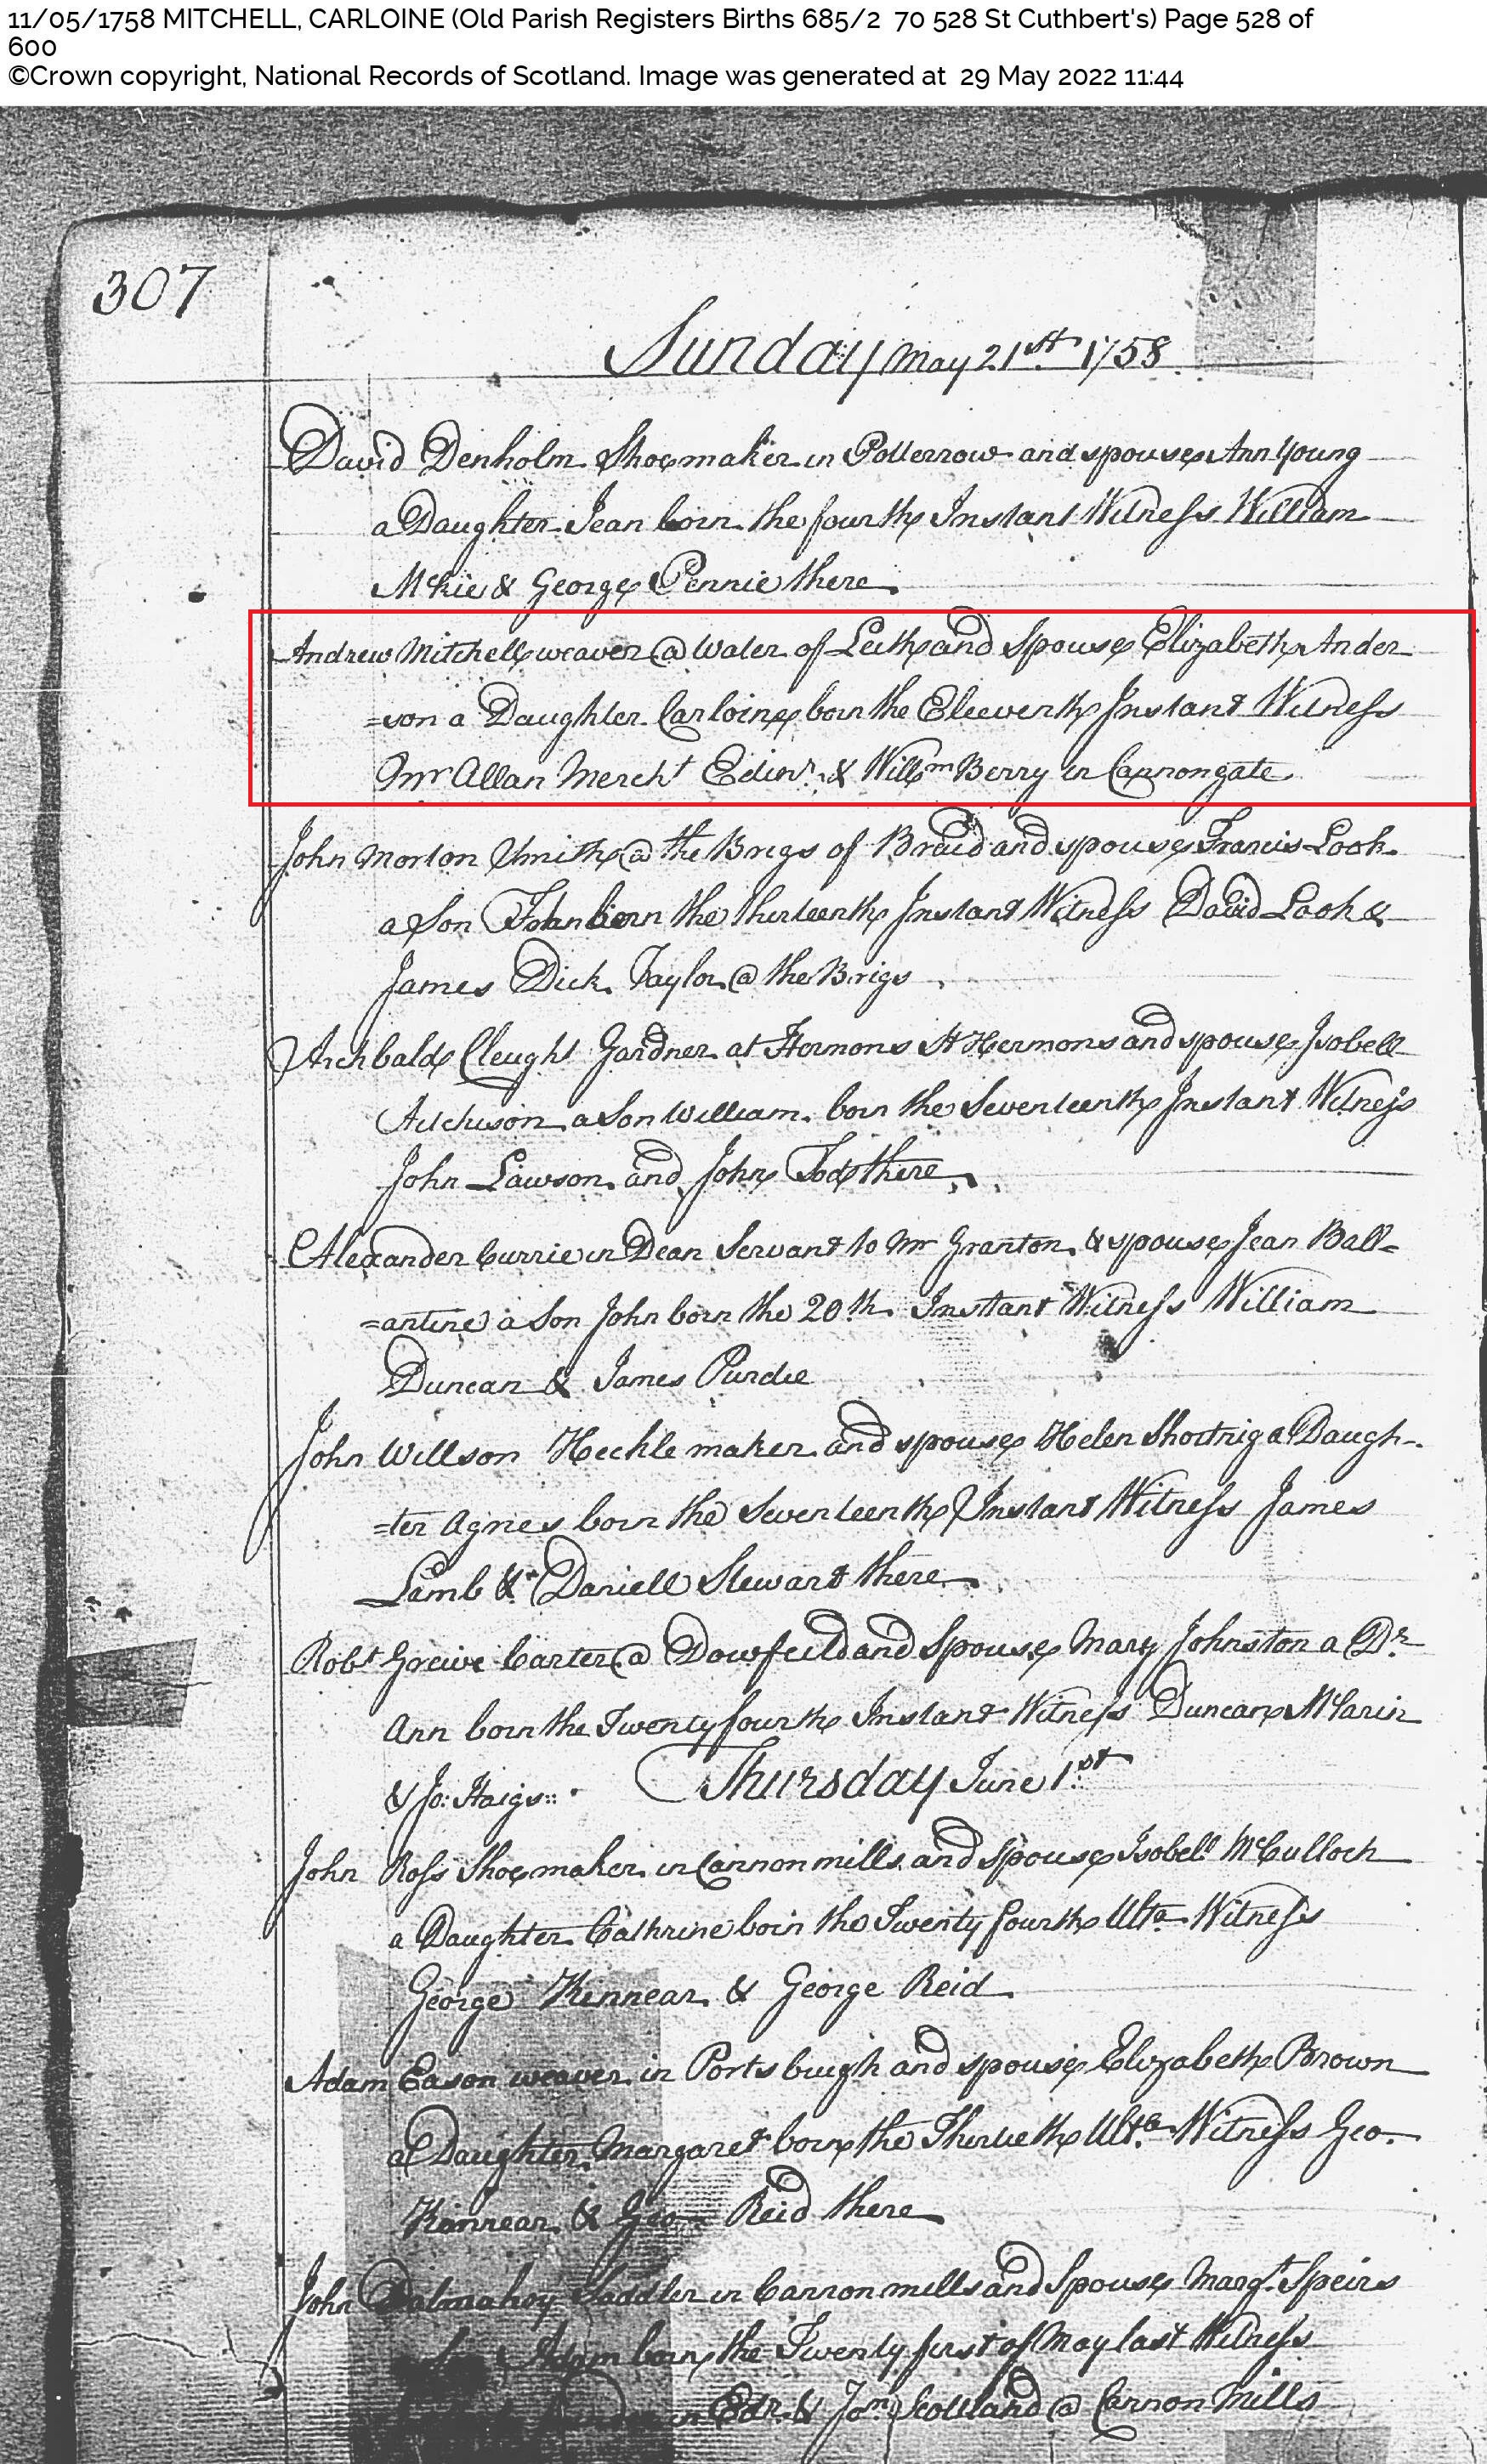 11/05/1758 MITCHELL, CARLOINE (Old Parish Registers Births 685/2 70 528 St Cuthbert's) Page 528 of
600
©Crown copyright, National Records of Scotland. Image was generated at 29 May 2022 11:44
307
Sunday May 21st 1758
David Denholm Shoemaker in Potterrow and spouse Ann Young
a Daughter Jean born the fourth Instant Witness William
McKie & George Pennie there
Andrew Mitchell weaver @ Water of Leith and Spouse Elizabeth Ander
=son a Daughter Carloine born the Eleeventh Instant Witness
Mr Allan Mercht Edinr & Willm Berry in Cannongate
John Morton Smith @ the Brigs of Braid and spouse Francis Look
a Son John born the thirteenth Instant Witness David Look &
James Dick Taylor @ the Brigs
Archbald Cleught Gardner at Hermons St Hermons and spouse Isobell
Aitchison a Son William born the Seventeenth Instant Witness
John Lawson and John Tod there
Alexander Currie in Dean Servant to Mr Granton & spouse Jean Ball=
=antine a Son John born the 20th Instant Witness William
Duncan & James Purdie
John Willson Heckle maker and spouse Helen Shortrig a Daugh-
=ter Agnes born the Seventeenth Instant Witness James
Lamb & Daniell Stewart there
Robt Greive Carter @ Dowfeild and Spouse Mary Johnston a Dr
Ann born the Twenty fourth Instant Witness Duncan McLarin
& Jo: Haigs
Thursday June 1st
John Ross Shoemaker in Cannon mills and Spouse Isobell McCulloch
a Daughter Cathrine born the Twenty fourth Ulto Witness
George Kinnear & George Reid
Adam Eason weaver in Portsburgh and spouse Elizabeth Brown
a Daughter Margaret born the Thirtieth Ulto Witness Geo.
Kinnear & Geo Reid there
John Dalmahoy Saddler in Cannonmills and Spouse Margt Speirs
Adam born the Twenty first of May last Witness
in Edr & Jon Scotland @ Cannon Mills